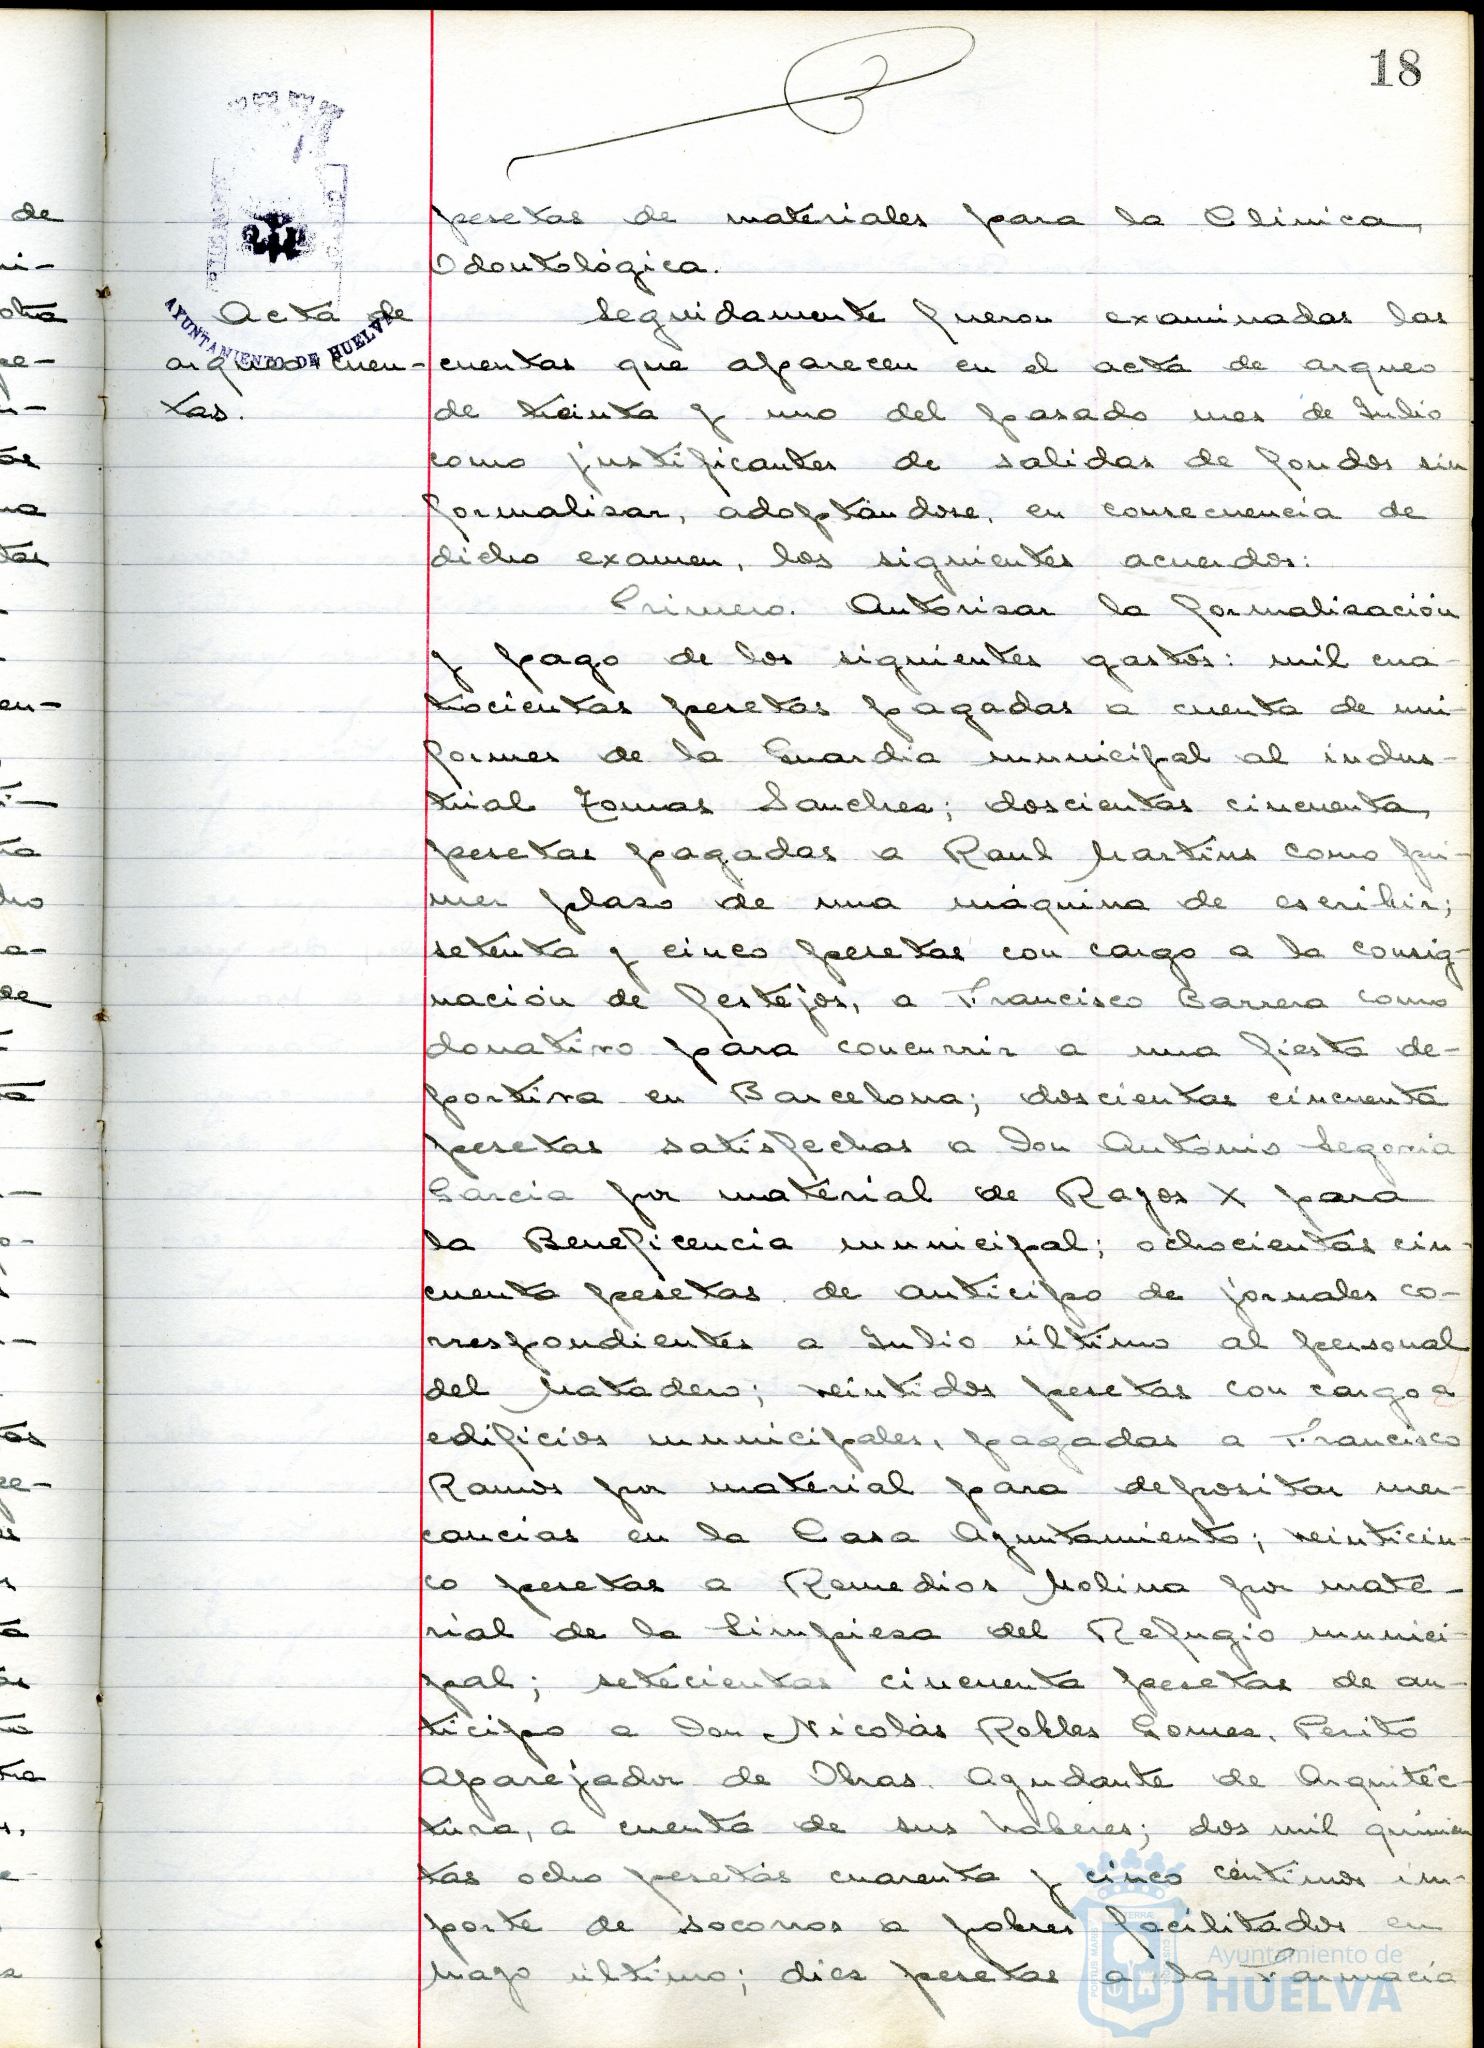 18
pesetas de materiales para la Clinica
Odontológica.
Acta de
arqueo cuen-
tas.
AYUNTAMIENTO DE HUELVA
Seguidamente fueron examinadas las
cuentas que aparecen en el acta de arqueo
de treinta y uno del pasado mes de Julio
como justificantes de salidas de fondos sin
formalisar, adoptándose, en consecuencia de
dicho examen, los siguientes acuerdos:
Primero. Autorisar la formalisación
y pago de los siguientes gastos: mil cua-
trocientas pesetas pagadas a cuenta de uni-
formes de la Guardia municipal al indus-
trial Tomas Sanches; doscientas cincuenta
pesetas pagadas a Raul Martins como pri-
mer plaso de una máquina de escribir;
setenta y cinco pesetas con cargo a la consig-
nación de festejos, a Francisco Barrera como
donativo para concurrir a una fiesta de-
portiva en Barcelona; doscientas cincuenta
pesetas satisfechas a Don Antonio Segovia
Garcia por material de Rayos X para
la Beneficencia municipal; ochocientas cin-
cuenta pesetas de anticipo de jornales co-
rrespondientes a Julio último al personal
del Matadero; veintidos pesetas con cargo a
edificios municipales, pagadas a Francisco
Ramos por material para depositar mer-
cancias en la Casa Ayuntamiento; veinticin-
co pesetas a Remedios Molina por mate-
rial de la limpiesa del Refugio munici-
pal; setecientas cincuenta pesetas de an-
ticipo a Don Nicolás Robles Gomes, Perito
Aparejador de Obras. Ayudante de Arquitec-
tura, a cuenta de sus haberes; dos mil quinien
tas ocho pesetas cuarenta y cinco céntimos im-
porte de socorros a pobres facilitados en
Mayo último; dies pesetas a la Farmacia
Ayuntamiento de
HUELVA